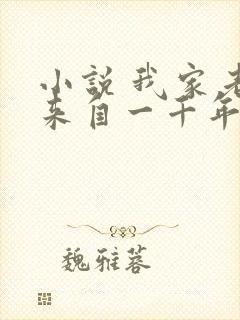 小説我家老
来自一千年
魏雅蓉